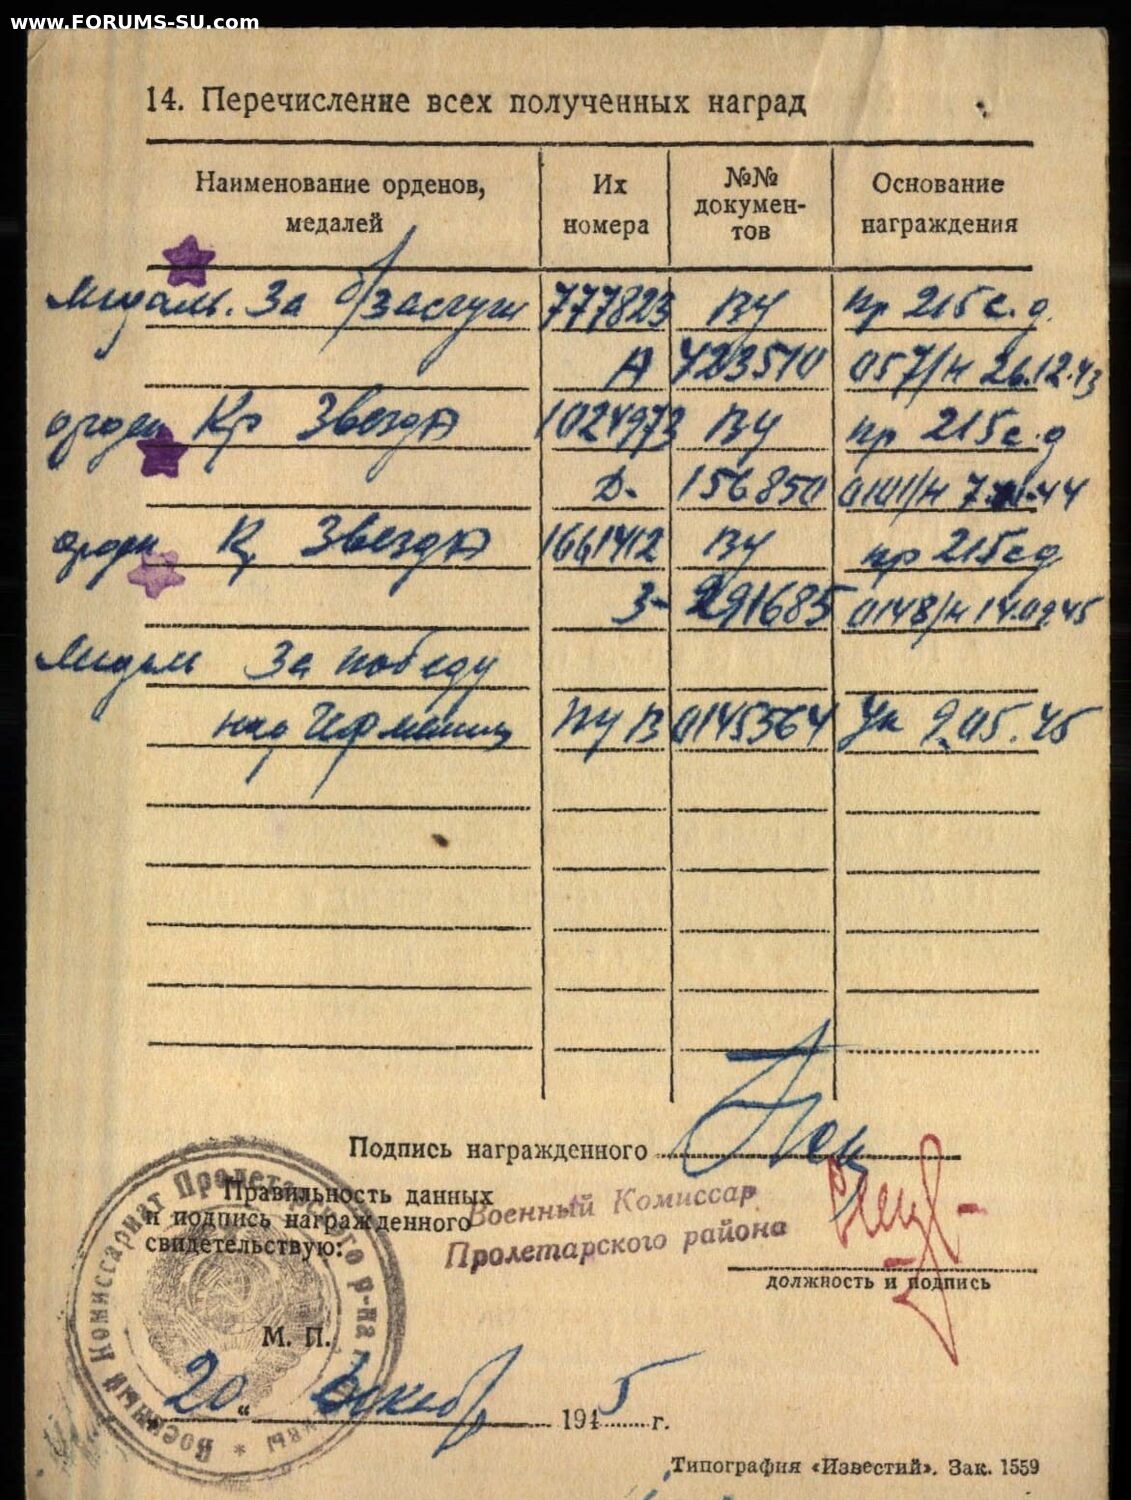 www.FORUMS-SU.com
14. Перечисление всех полученных наград
Наименование орденов, медалей
Их номера
№№ докумен-тов
Основание награждения
Медаль. За б/заслуги 777823 ВУ пр 215 с.д.
А 723510 057/н 26.12.43
орден Кр Звезда 1024973 ВУ пр 215 с.д
Д. 156850 0101/н 44
орден Кр Звезда 1661412 ВУ пр 215 сд
З- 291685 0148/н 45
Медаль За победу
над Германи ПУ В 0145364 Ук 9.05.45
Подпись награжденного
Правильность данных
и подпись награжденного
свидетельствую:
Военный Комиссар
Пролетарского района
должность и подпись
Военный Комиссариат Пролетарского р-на г. Москвы *
М. П.
20 " 1945 г.
Типография «Известий». Зак. 1559